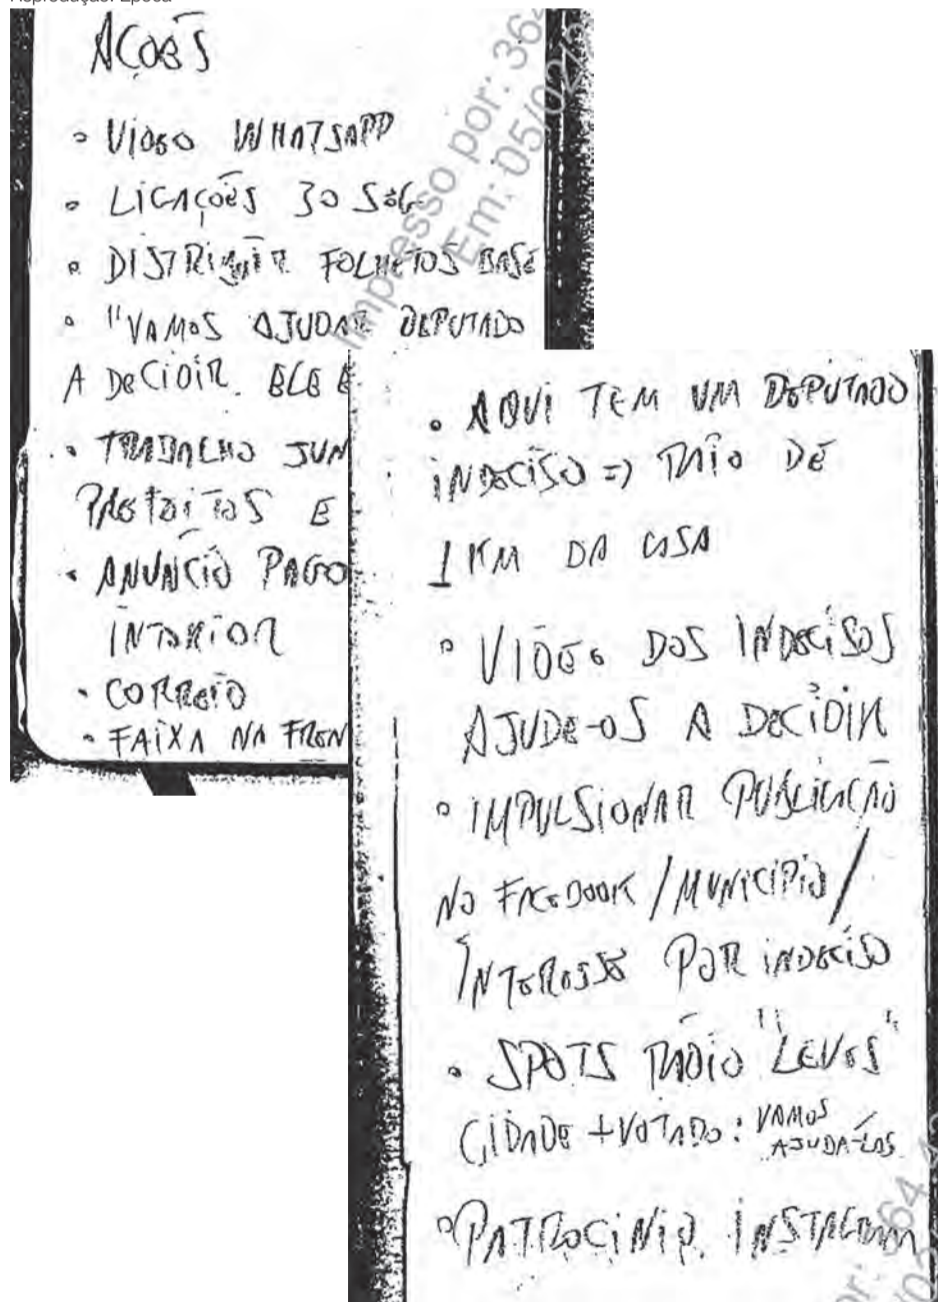 Reprodução: Época
AÇÕES
• VIDEO WHATSAPP
• LIGAÇÕES 30 SEG
• DISTRIBUIR FOLHETOS BASE
• "VAMOS AJUDAR DEPUTADO
A DECIDIR ELE E
• TRABALHO JUN
PREFEITOS E
• ANUNCIO PAGO
INTERIOR
• CORREIO
• FAIXA NA FREN
Impresso por: 364
Em: 05/02/2
• AQUI TEM UM DEPUTADO
INDECISO => RAIO DE
1 KM DA CASA
• VIDEO DOS INDECISOS
AJUDE-OS A DECIDIR
• IMPULSIONAR PUBLICAÇÃO
NO FACEBOOK / MUNICIPIO /
INTERESSE POR INDECISO
• SPOTS RÁDIO "LEVES"
CIDADE + VOTADO: VAMOS
AJUDÁ-LOS
• PATROCINIO INSTAGRAM